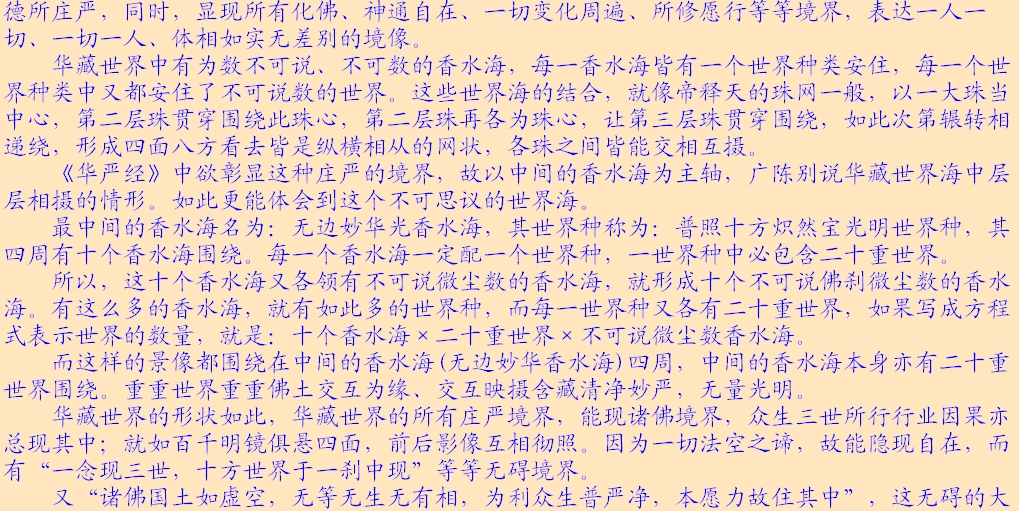 德所庄严，同时，显现所有化佛、神通自在、一切变化周遍、所修愿行等等境界，表达一人一
切、一切一人、体相如实无差别的境像。
华藏世界中有为数不可说、不可数的香水海，每一香水海皆有一个世界种类安住，每一个世
界种类中又都安住了不可说数的世界。这些世界海的结合，就像帝释天的珠网一般，以一大珠当
中心，第二层珠贯穿围绕此珠心，第二层珠再各为珠心，让第三层珠贯穿围绕，如此次第辗转相
递绕，形成四面八方看去皆是纵横相从的网状，各珠之间皆能交相互摄。
《华严经》中欲彰显这种庄严的境界，故以中间的香水海为主轴，广陈别说华藏世界海中层
层相摄的情形。如此更能体会到这个不可思议的世界海。
最中间的香水海名为：无边妙华光香水海，其世界种称为：普照十方炽然宝光明世界种，其
四周有十个香水海围绕。每一个香水海一定配一个世界种，一世界种中必包含二十重世界。
所以，这十个香水海又各领有不可说微尘数的香水海，就形成十个不可说佛刹微尘数的香水
海。有这么多的香水海，就有如此多的世界种，而每一世界种又各有二十重世界，如果写成方程
式表示世界的数量，就是：十个香水海×二十重世界×不可说微尘数香水海。
而这样的景像都围绕在中间的香水海(无边妙华香水海)四周，中间的香水海本身亦有二十重
世界围绕。重重世界重重佛土交互为缘、交互映摄含藏清净妙严，无量光明。
华藏世界的形状如此，华藏世界的所有庄严境界，能现诸佛境界，众生三世所行行业因果亦
总现其中；就如百千明镜俱悬四面，前后影像互相彻照。因为一切法空之谛，故能隐现自在，而
有“一念现三世，十方世界于一刹中现”等等无碍境界。
又“诸佛国土如虚空，无等无生无有相，为利众生普严净，本愿力故住其中”，这无碍的大